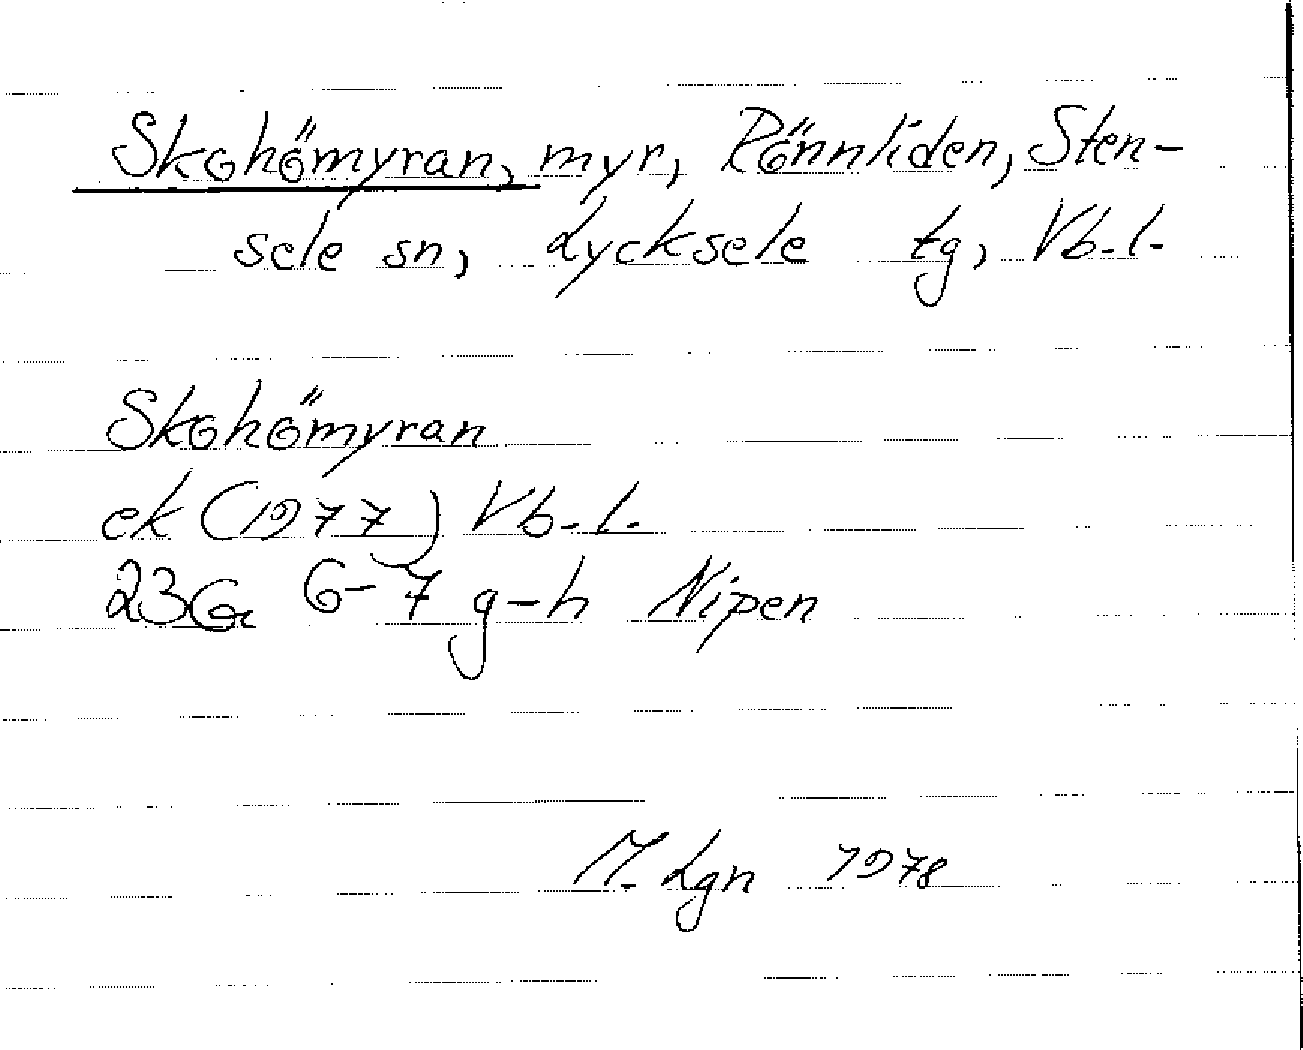 Skohömyran, myr, Rönnliden, Sten-
sele sn, Lycksele tg, Vb.l.
Skohömyran
ek (1977) Vb.l.
23G 6-7 g-h Nipen
M. Lgn 1978